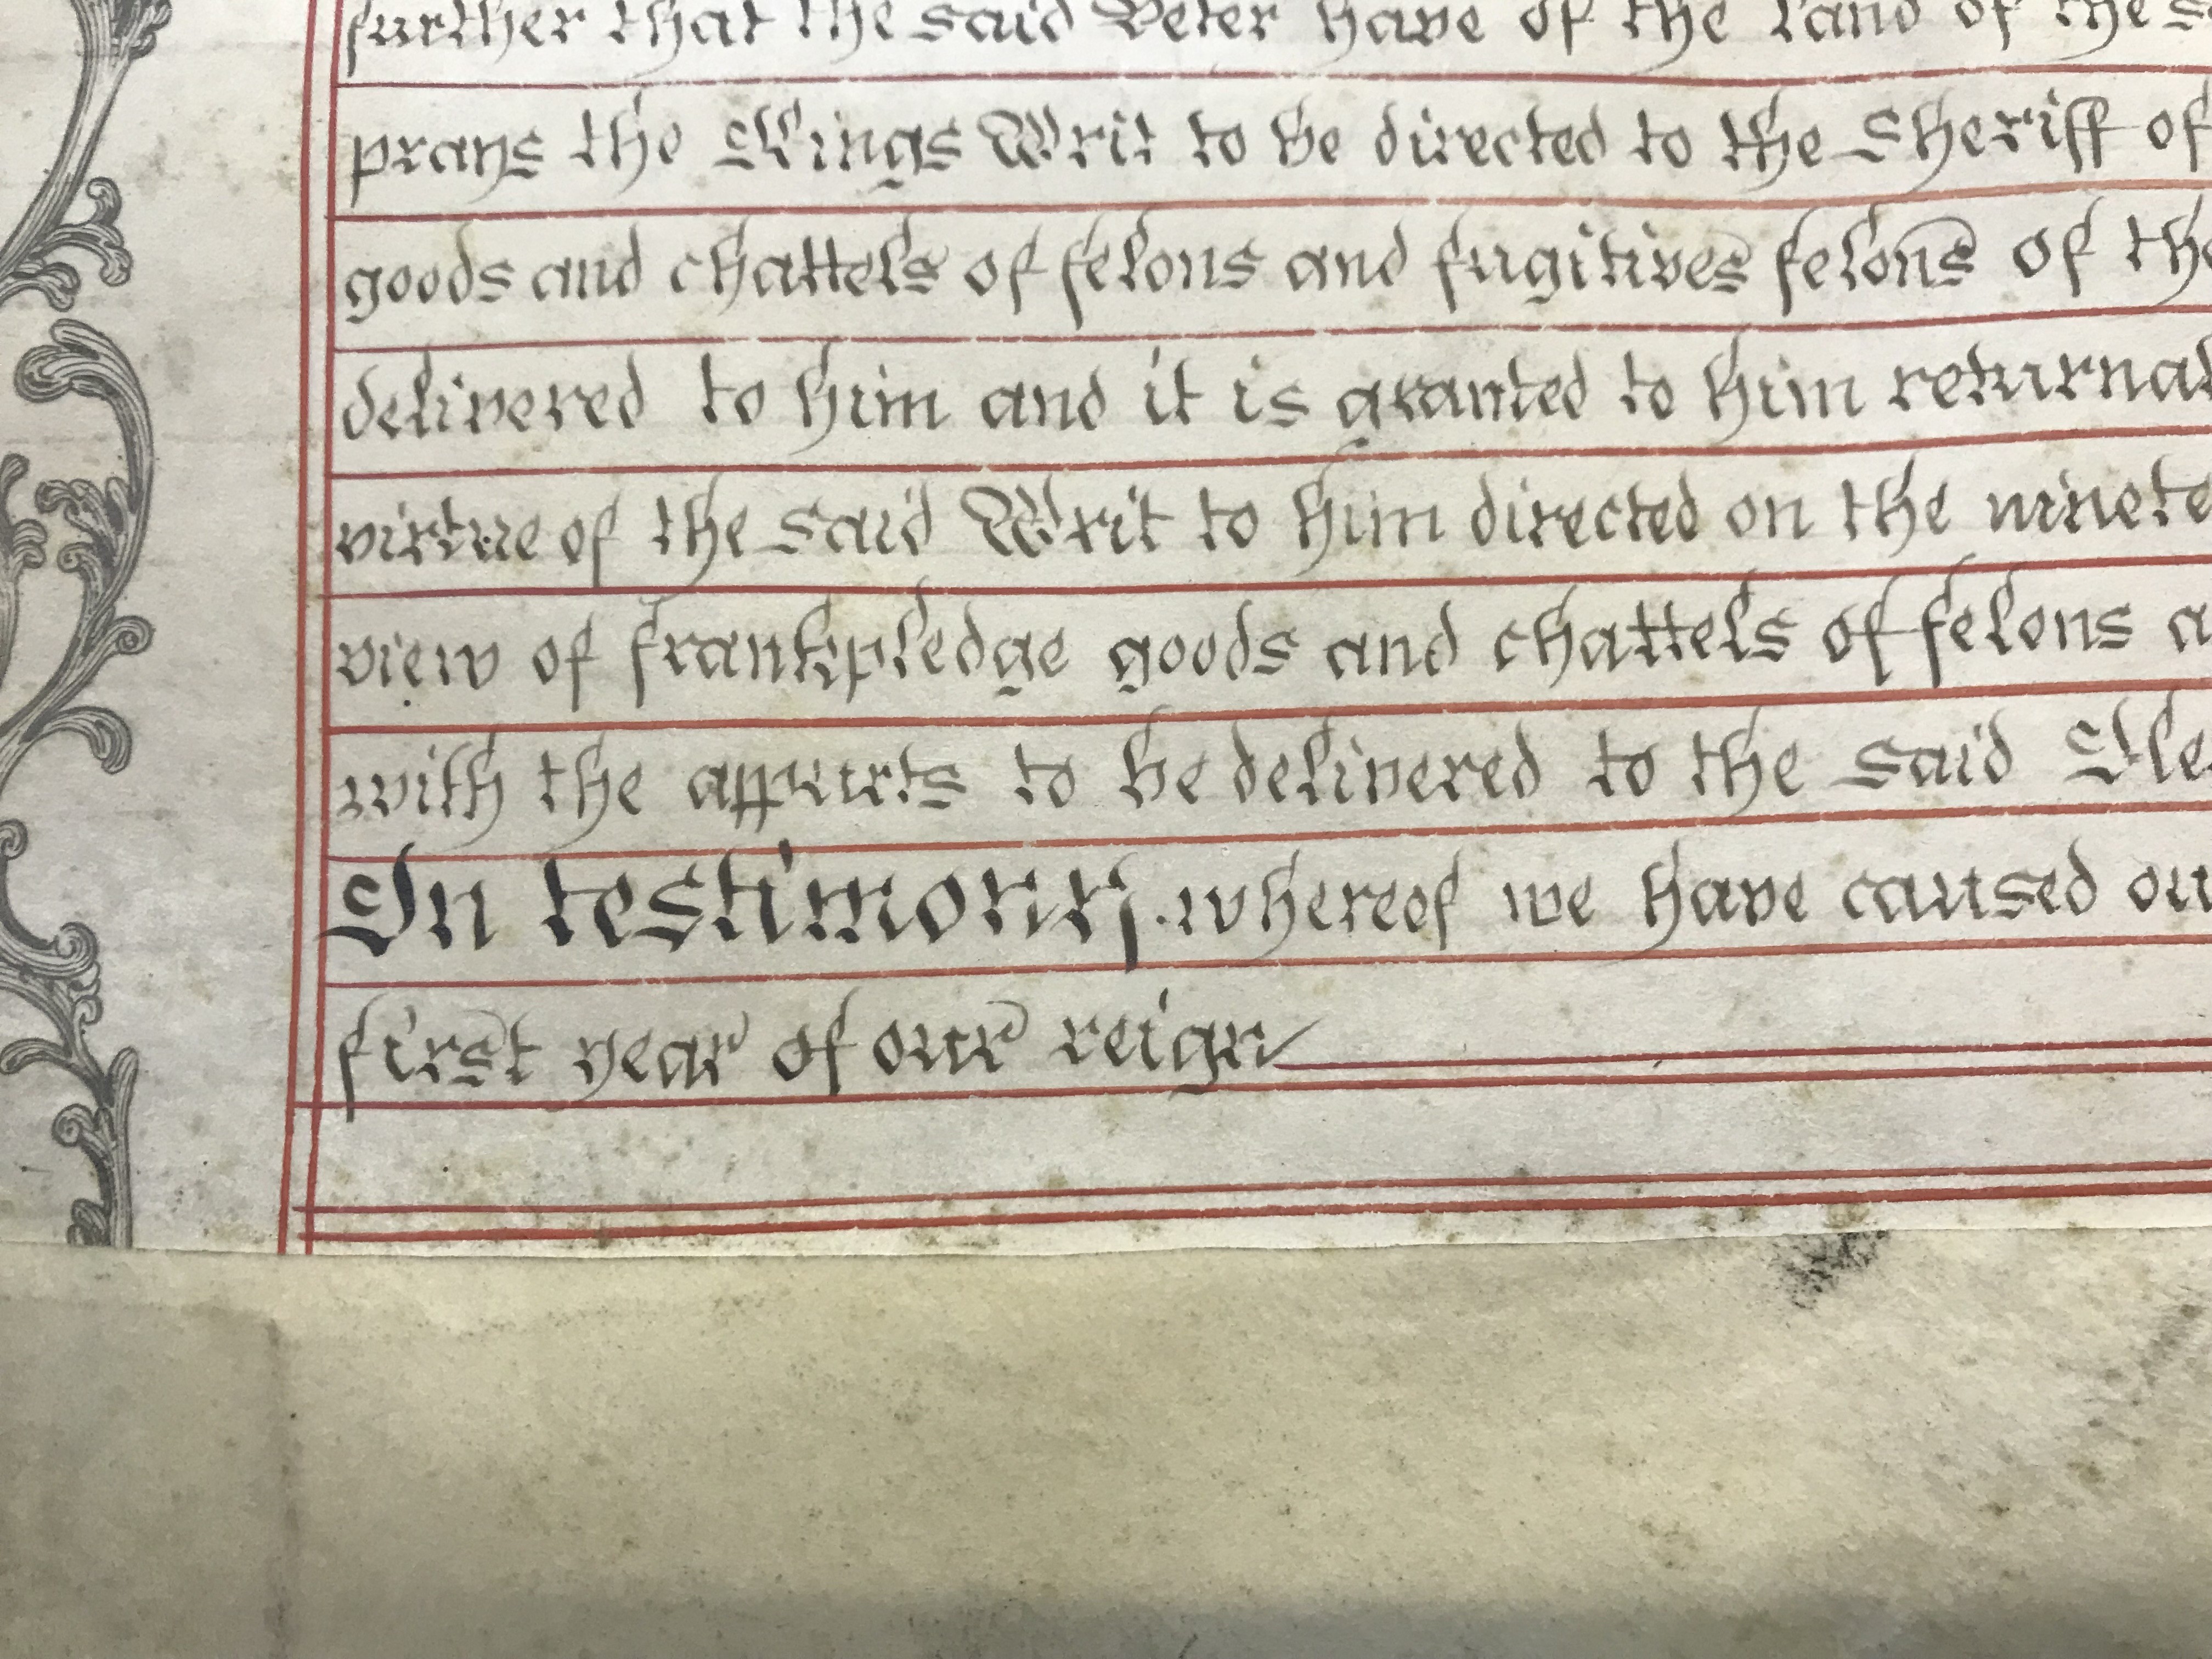 further that the said Peter have of the land of the s
prays the Kings Writ to be directed to the Sheriff of
goods and chattels of felons and fugitives felons of the
delivered to him and it is granted to him returnal
virtue of the said Writ to him directed on the ninete
view of frankpledge goods and chattels of felons a
with the appurts to be delivered to the said
In testimony whereof we have caused ou
first year of our reign